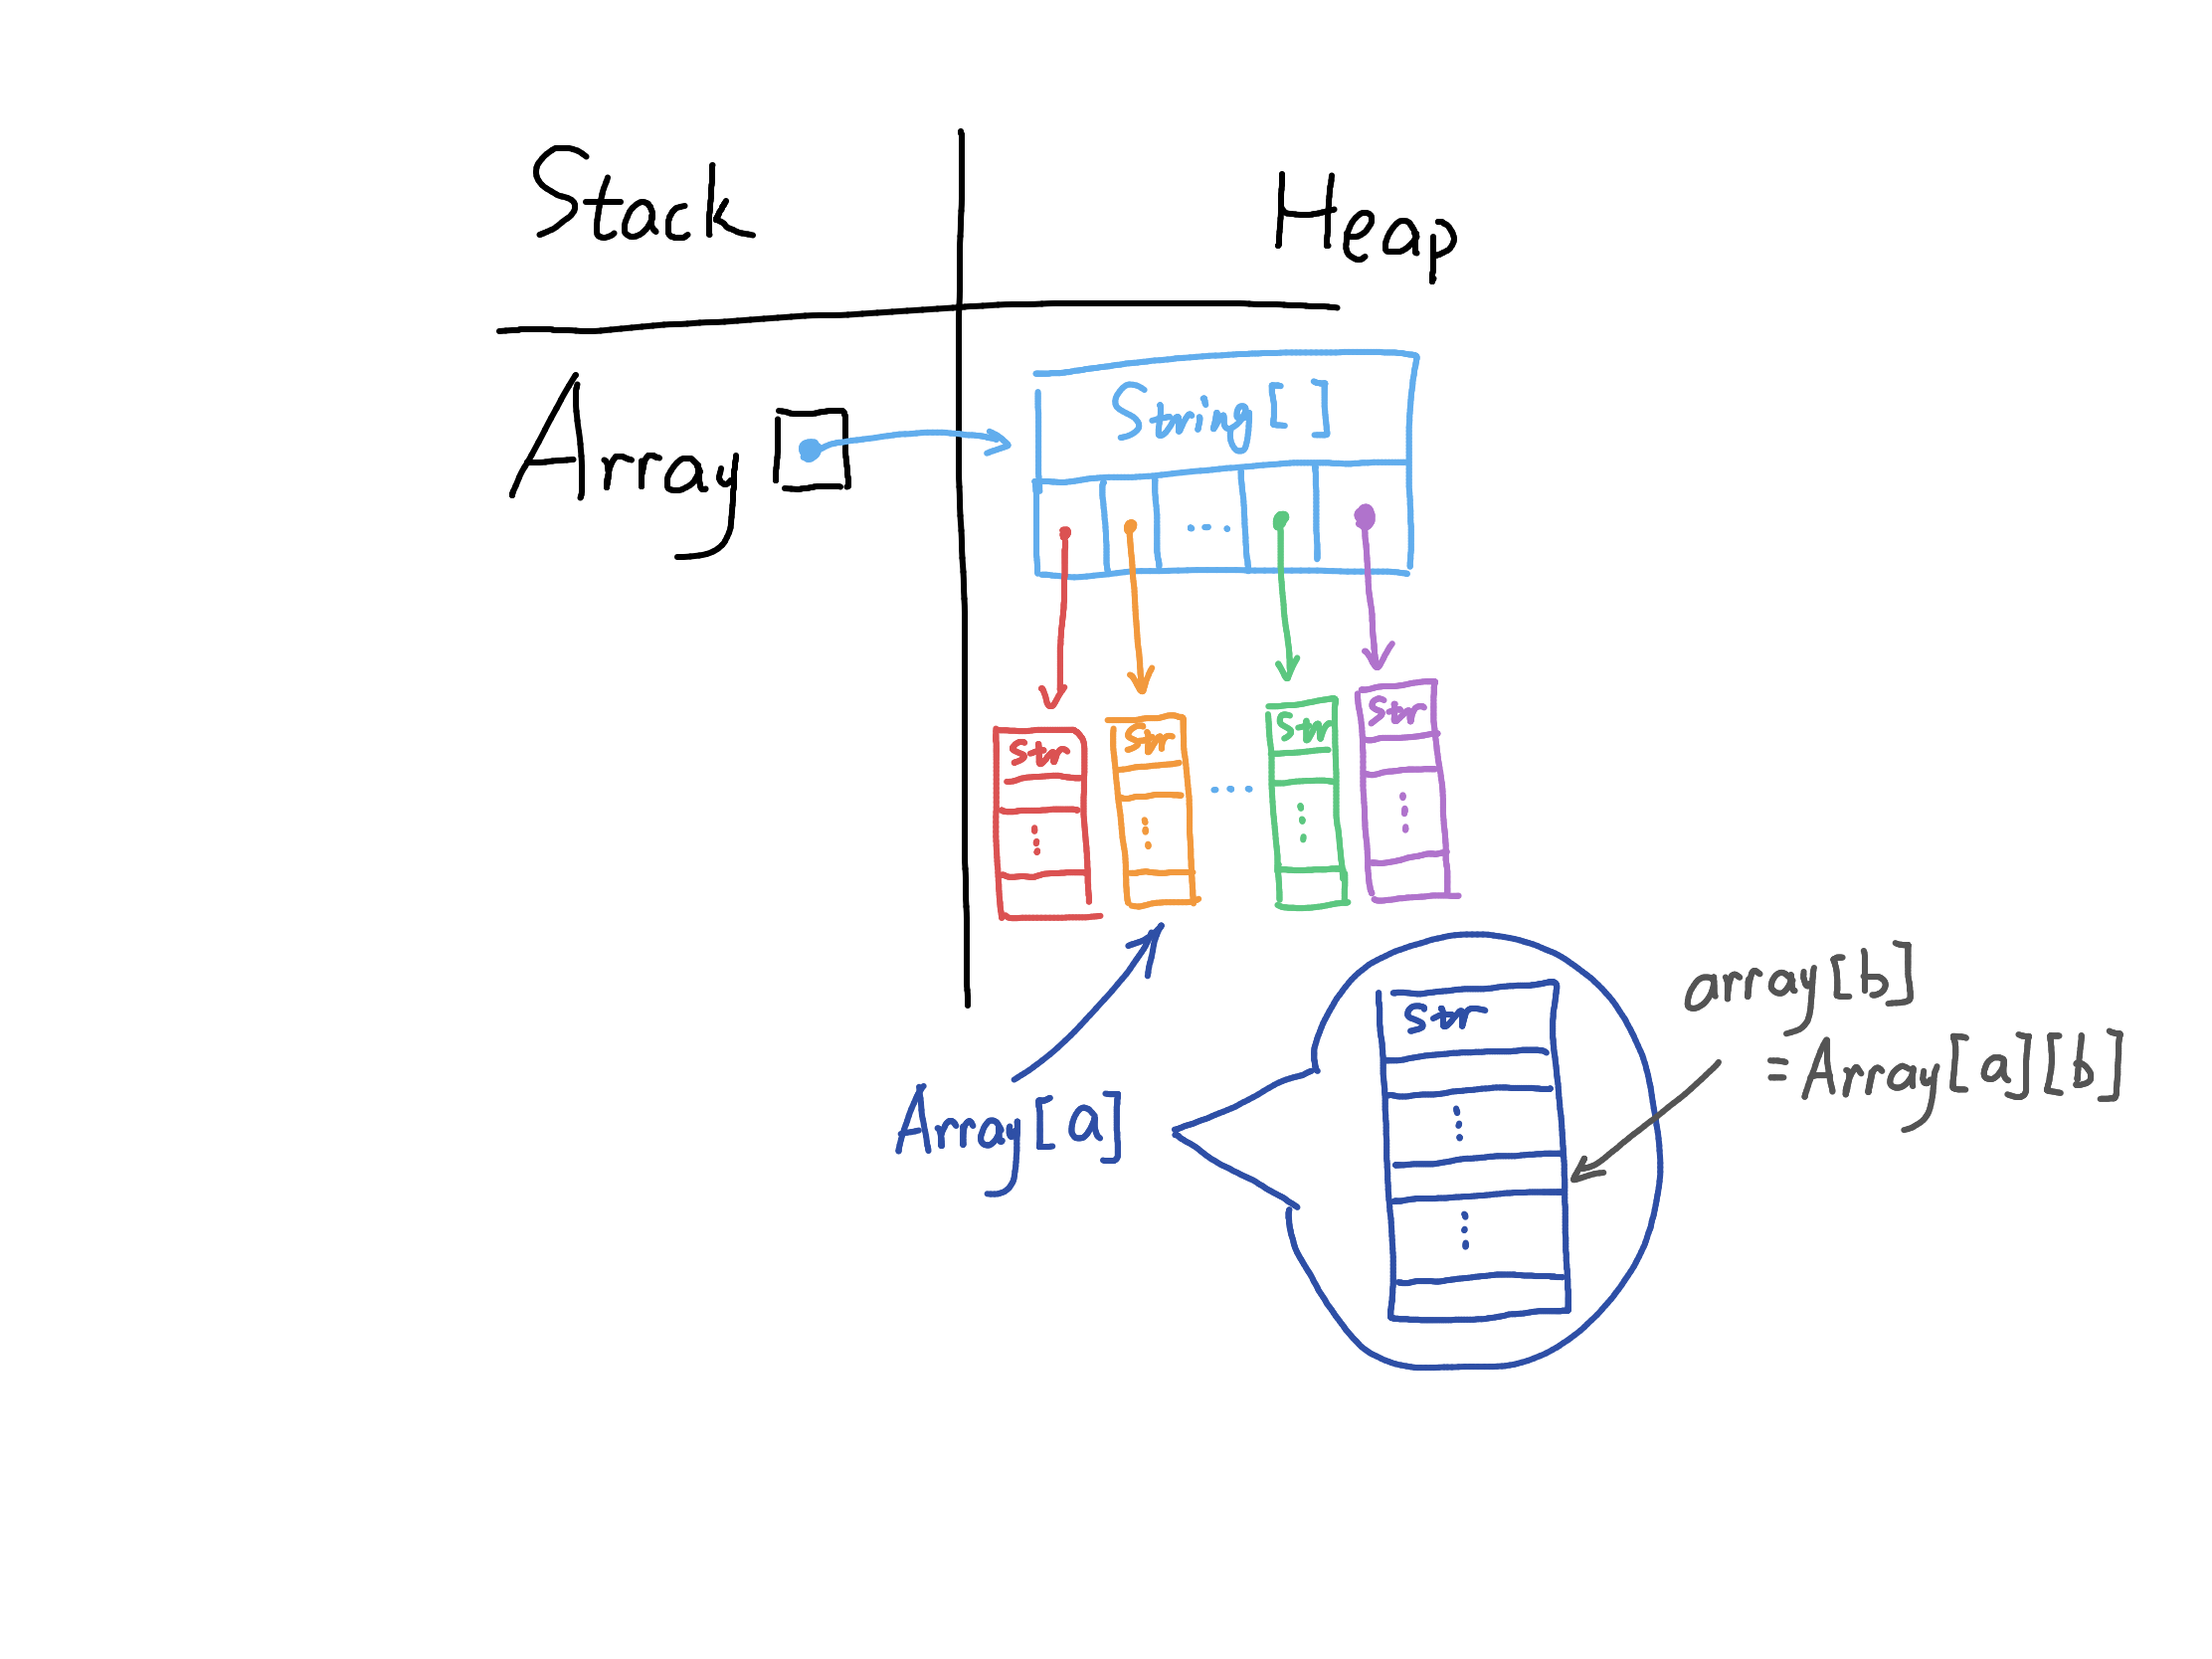 Stack
Heap
Array
String[]
...
str
str
...
str
str
Array[a]
str
array[b]
=Array[a][b]